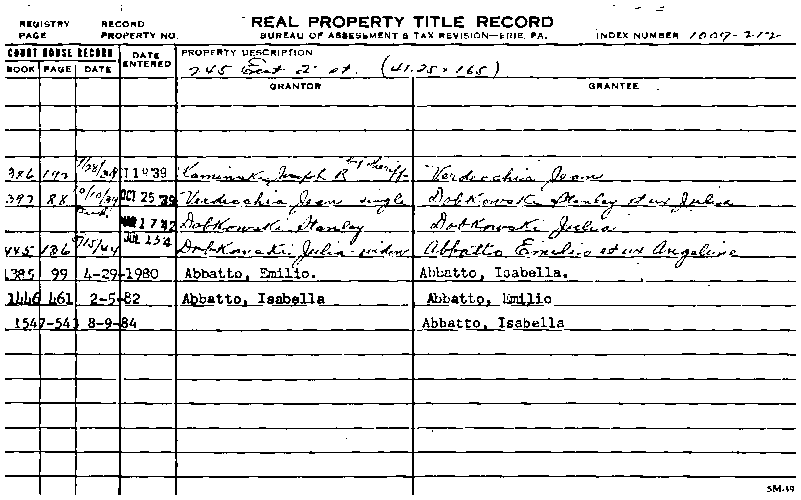 REGISTRY PAGE RECORD PROPERTY NO. REAL PROPERTY TITLE RECORD
BUREAU OF ASSESSMENT & TAX REVISION—ERIE, PA. INDEX NUMBER 1009-212
COURT HOUSE RECORD DATE ENTERED PROPERTY DESCRIPTION
BOOK PAGE DATE 245 East 2 st. (41.25 x 165)
GRANTOR GRANTEE
386 192 39 Kaminski, Joseph R by Sheriff Verdecchia Jean
397 88 OCT 25 39 Verdecchia Jean single Dobkowski Stanley et ux Julia
Dobkowski Stanley Dobkowski Julia
445 136 9/15/44 JUL Dobkowski Julia widow Abbatto Emilio et ux Angeline
1385 99 4-29-1980 Abbatto, Emilio. Abbatto, Isabella.
1446 461 2-5-82 Abbatto, Isabella Abbatto, Emilio
1547-541 8-9-84 Abbatto, Isabella
5M-49